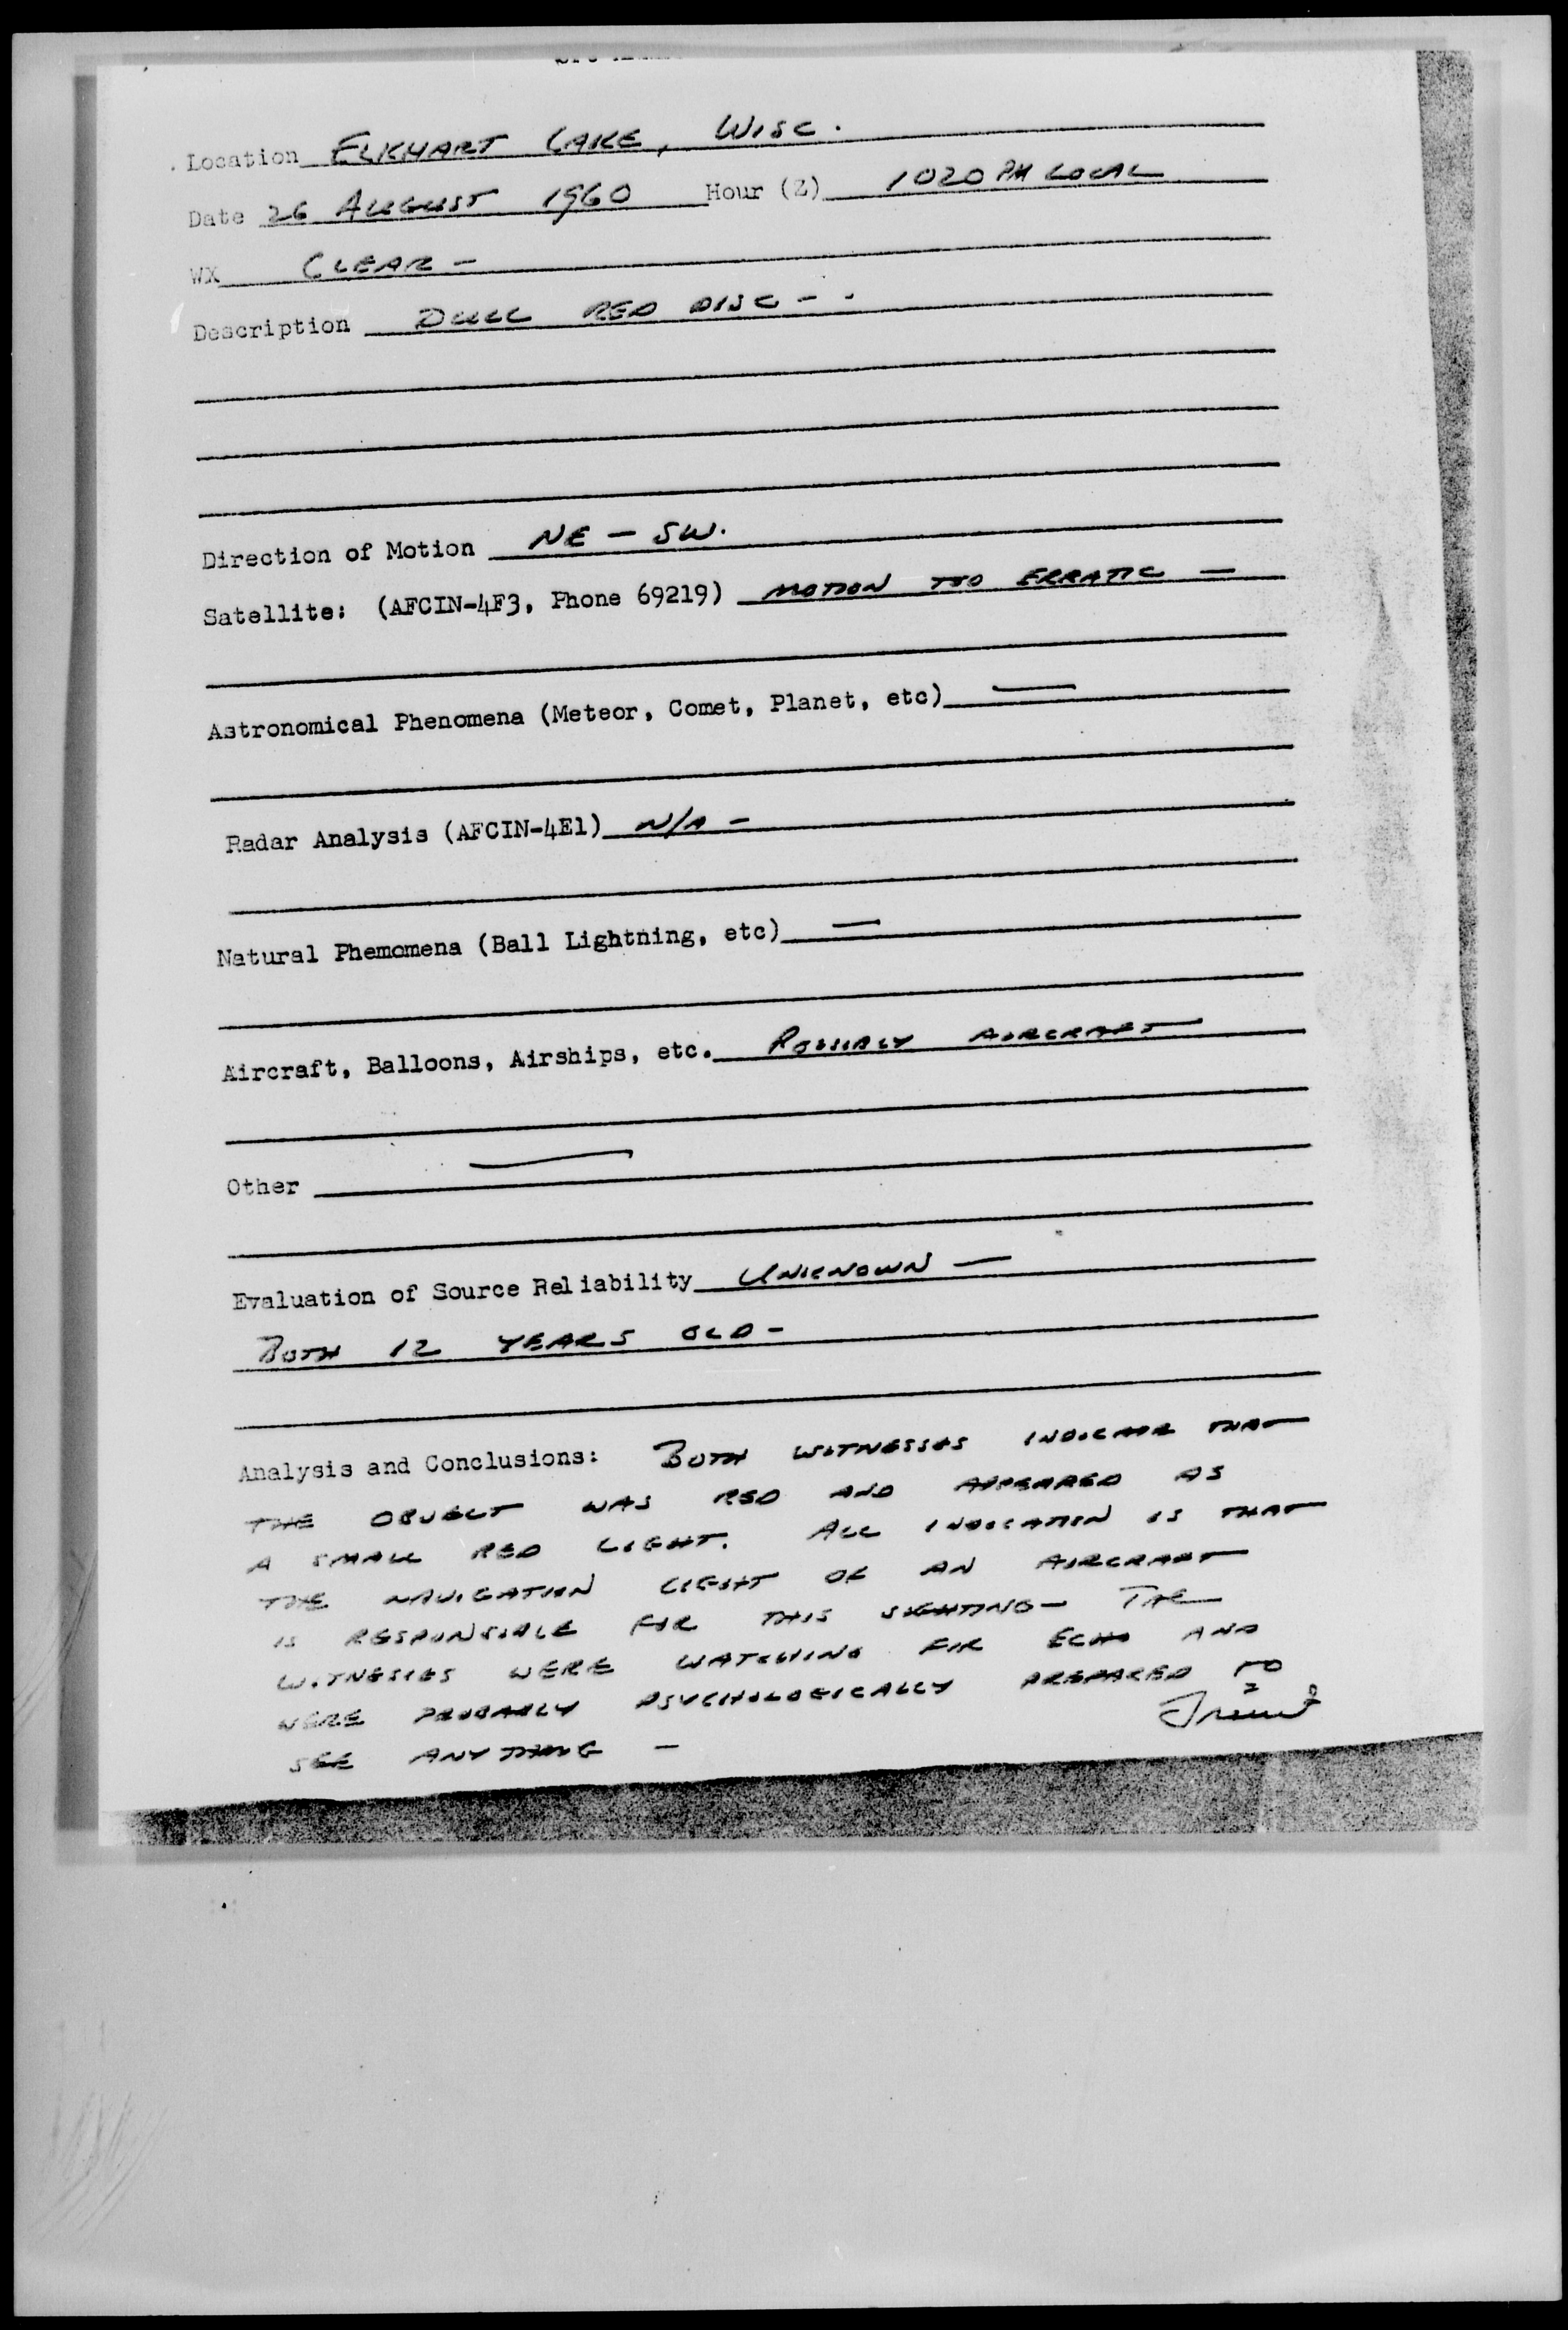 Location ELKHART LAKE, WISC.
Date 26 AUGUST 1960 Hour (Z) 1020 PM LOCAL
WX CLEAR -
Description DULL RED DISC - -
Direction of Motion NE - SW.
Satellite: (AFCIN-4F3, Phone 69219) MOTION TOO ERRATIC -
Astronomical Phenomena (Meteor, Comet, Planet, etc) —
Radar Analysis (AFCIN-4E1) N/A -
Natural Phemomena (Ball Lightning, etc) —
Aircraft, Balloons, Airships, etc. POSSIBLY AIRCRAFT
Other —
Evaluation of Source Reliability UNKNOWN —
BOTH 12 YEARS OLD -
Analysis and Conclusions: BOTH WITNESSES INDICATE THAT
THE OBJECT WAS RED AND APPEARED AS
A SMALL RED LIGHT. ALL INDICATION IS THAT
THE NAVIGATION LIGHT OF AN AIRCRAFT
IS RESPONSIBLE FOR THIS SIGHTING - THE
WITNESSES WERE WATCHING FOR ECHO AND
WERE PROBABLY PSYCHOLOGICALLY PREPARED TO
SEE ANYTHING -